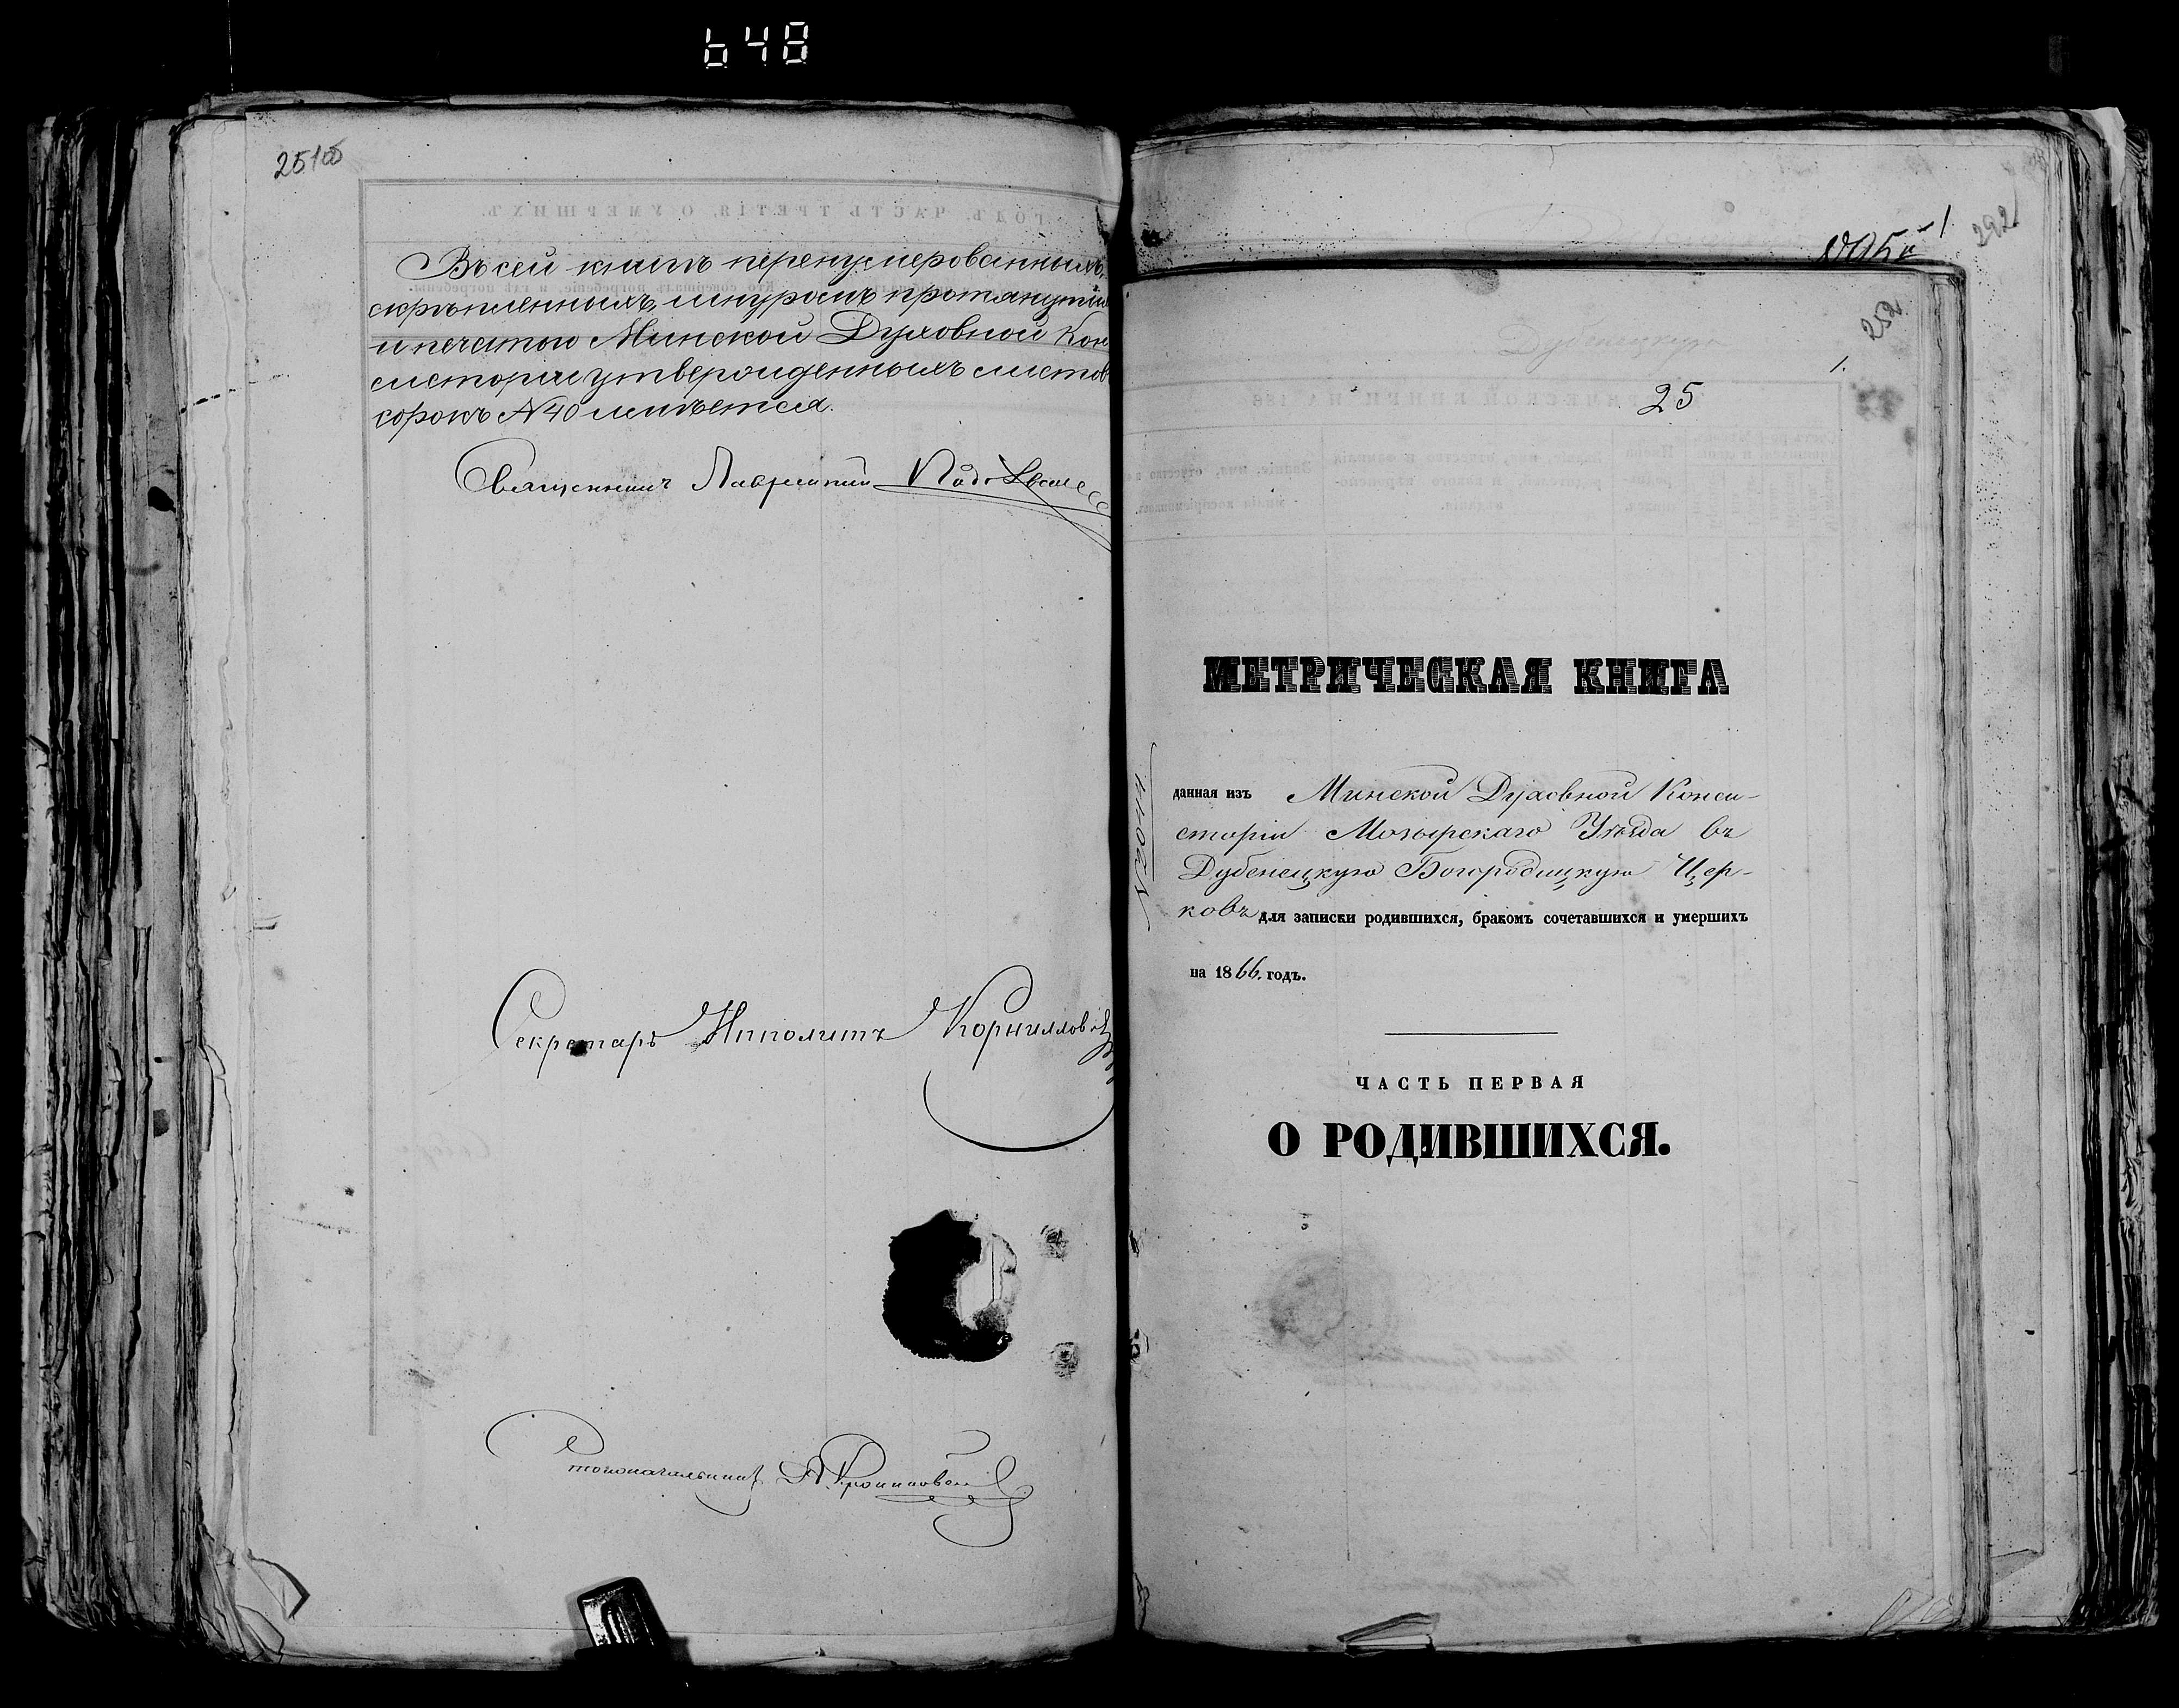 648
251об
Въ сей книгѣ перенумерованныхъ,
скрѣпленныхъ, шнуромъ протянутыхъ
и печатью Минской Духовной Кон
систоріи утвержденныхъ листовъ
сорокъ №40 имѣется.
Священникъ Лаврентий
Секретарь Ипполитъ Корнилловичъ
Столоначальникъ
292
252
Дубенецкую
1.
25
МЕТРИЧЕСКАЯ КНИГА
№ 20414
данная изъ Минской Духовной Конси-
сторіи Мозырскаго Уѣзда въ
Дубенецкую Богородицкую Цер-
ковь для записки родившихся, бракомъ сочетавшихся и умершихъ
на 1866. годъ.
ЧАСТЬ ПЕРВАЯ
О РОДИВШИХСЯ.